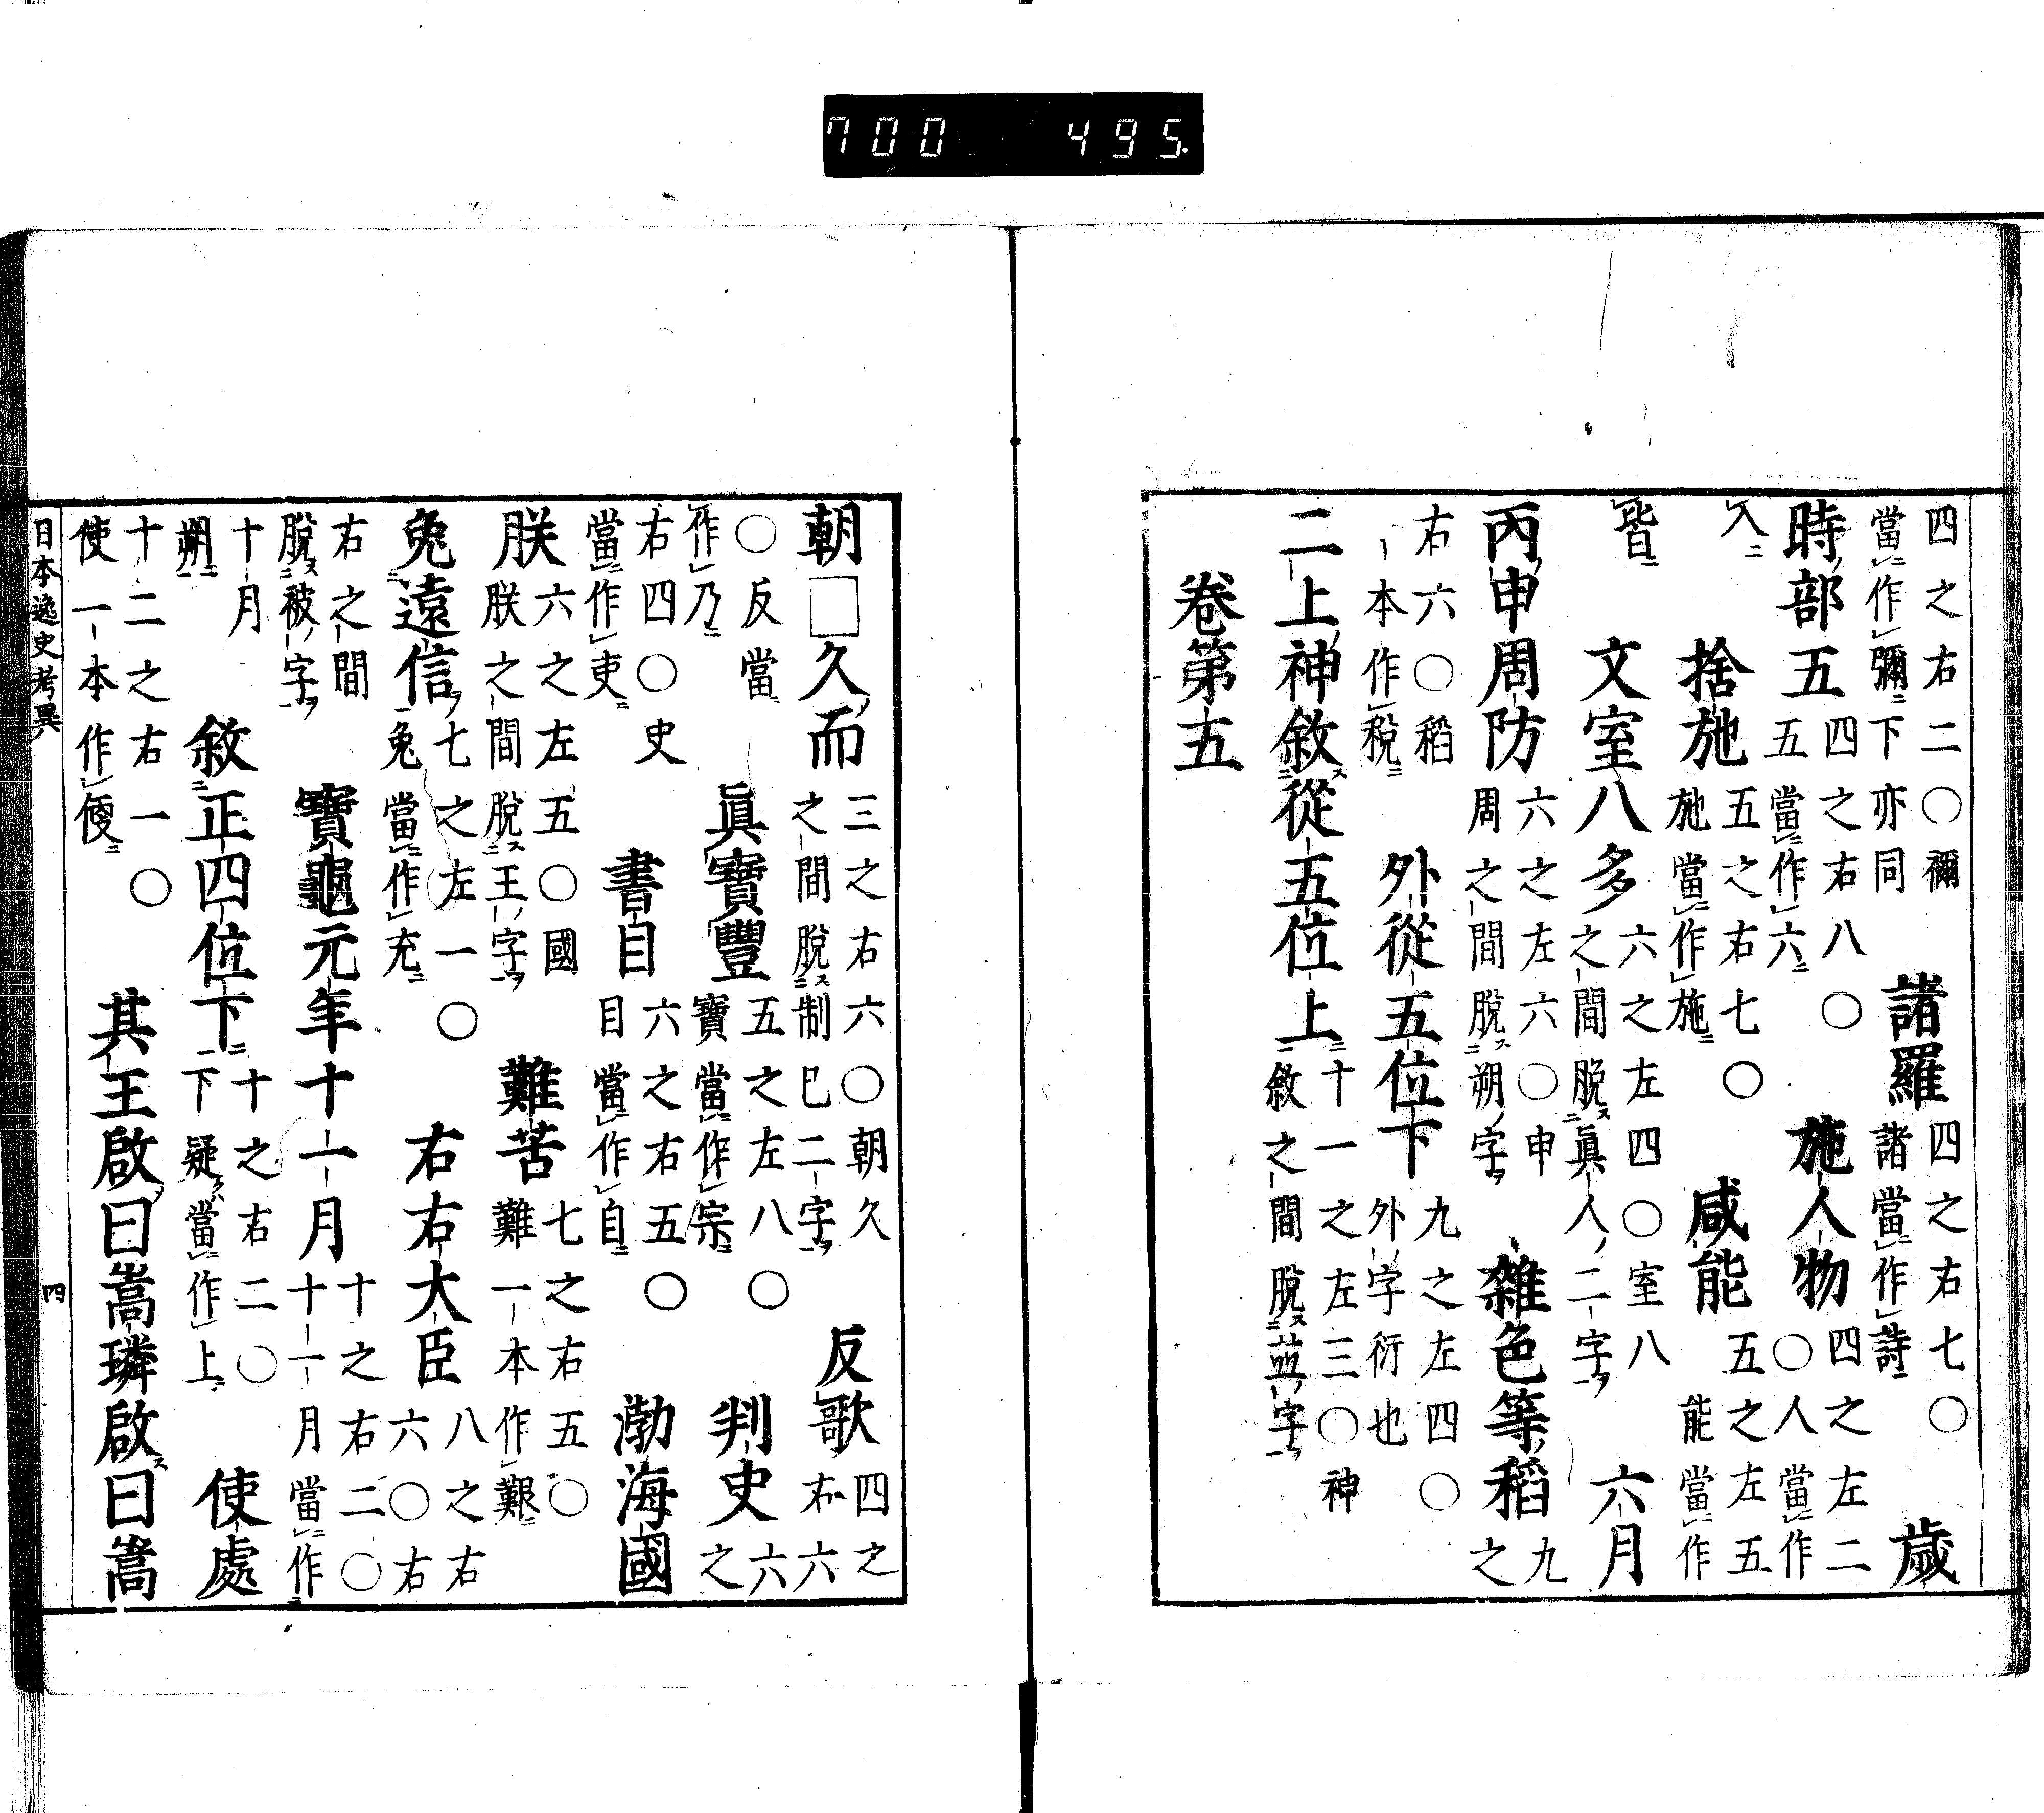 四之右二〇禰當作彌下亦同 諸羅 四之右七〇諸當作詩 歲
時部五 四之右八〇五當作六 施人物 四之左二〇人當作
入 捨施 五之右七〇施當作施 咸能 五之左五能當作
皆 文室八多 六之左四〇室八之間脫眞人二字 六月
丙申周防 六之左六〇申周之間脫朔字 雜色等稻 九之
右六〇稻一本作稅 外從五位下 九之左四〇外字衍也
二上神敘從五位上 十一之左三〇神敘之間脫並字
卷第五
朝□久而 三之右六〇朝久之間脫制已二字 反歌 四之右六
〇反當作乃 眞寶豐 五之左八〇寶當作宗 判史 六之
右四〇史當作吏 書目 六之右五〇目當作自 渤海國
朕 六之左五〇國朕之間脫王字 難苦 七之右五〇難一本作艱
兔遠信 七之左一〇兔當作充 右右大臣 八之右六〇右
右之間脫被字 寶龜元年十一月 十之右二〇十一月當作
十月朔 敘正四位下 十之右二〇下疑當作上 使處
十二之右一〇使一本作㑓 其王啟曰嵩璘啟曰嵩
日本逸史考異 四
700 495